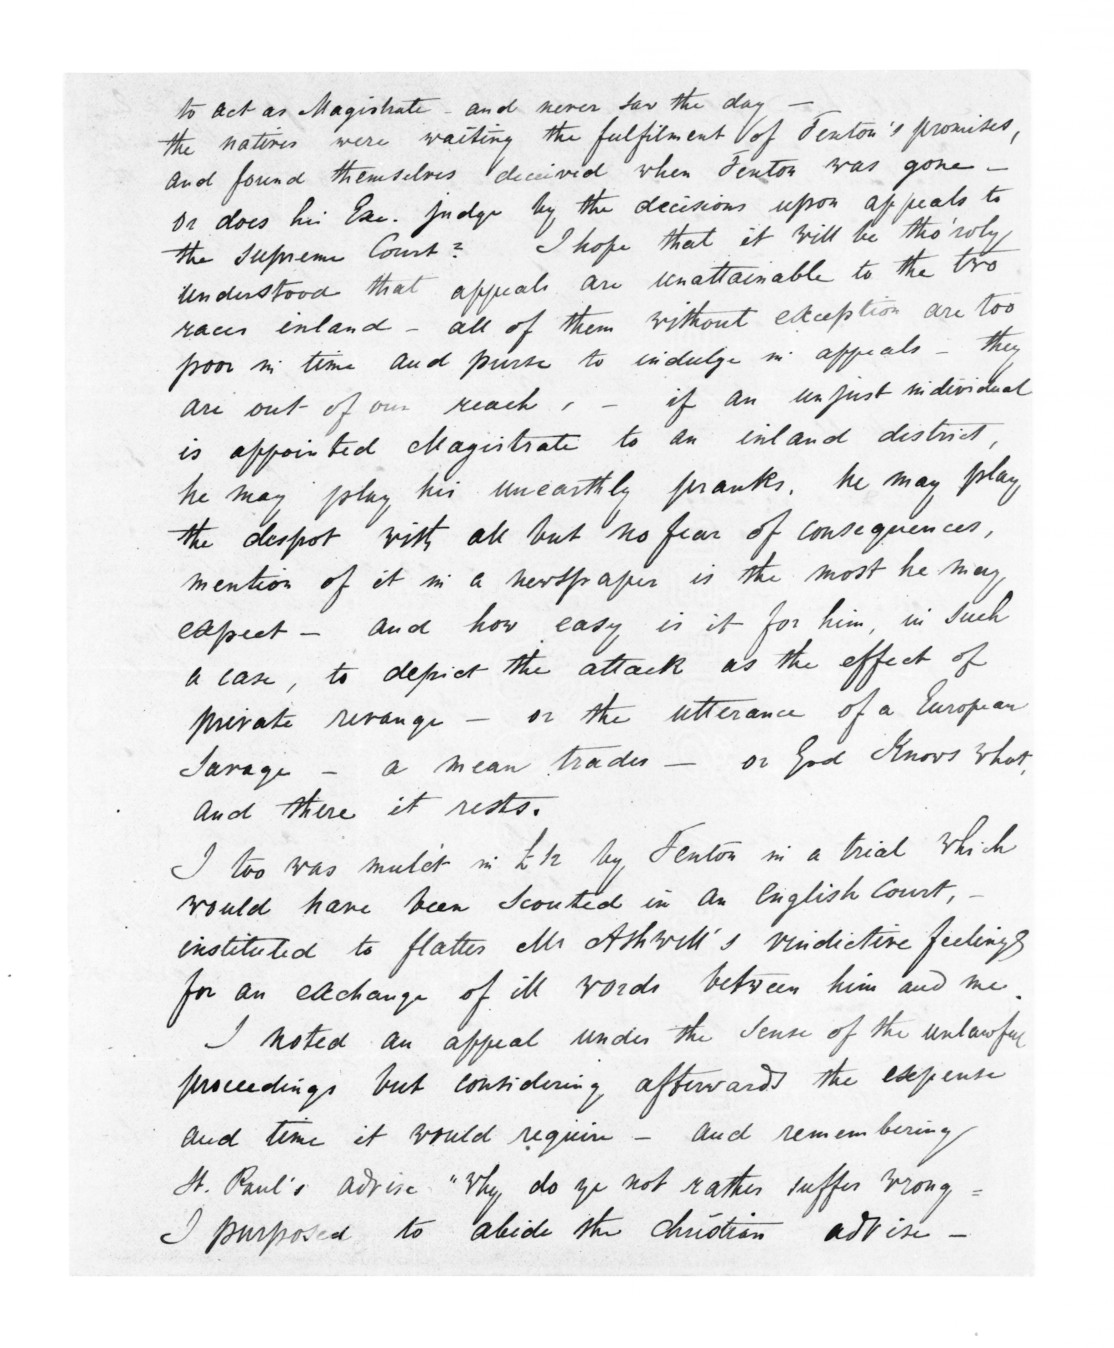 to act as Magistrate - and never saw the day -
the natives were waiting the fulfilment of Fenton's promises,
and found themselves deceived when Fenton was gone -
or does his Exe. judge by the decisions upon appeals to
the supreme Court? I hope that it will be tho'roly
understood that appeals are unattainable to the two
races inland - all of them without exception are too
poor in time and purse to indulge in appeals - they
are out of our reach, - if an unjust individual
is appointed Magistrate to an inland district,
he may play his unearthly pranks, he may play
the despot with all but no fear of consequences,
mention of it in a newspaper is the most he may
expect - and how easy is it for him, in such
a case, to depict the attack as the effect of
private revange - or the utterance of a European
Savage - a mean trader - or God Knows what,
and there it rests.
I too was mulct in £12 by Fenton in a trial which
would have been scouted in an English Court, -
instituted to flatter Mr Ashwell's vindictive feelings
for an exchange of ill words between him and me.
I noted an appeal under the sense of the unlawful
proceedings but considering afterwards the expense
and time it would require - and remembering
St. Paul's advise "Why do ye not rather suffer wrong =
I purposed to abide the christian advise -